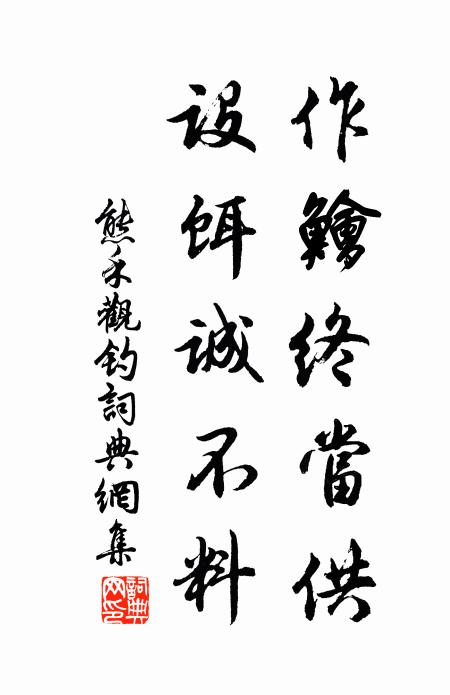 作鱠終當供
設餌誠不料
熊禾觀釣詞典網集